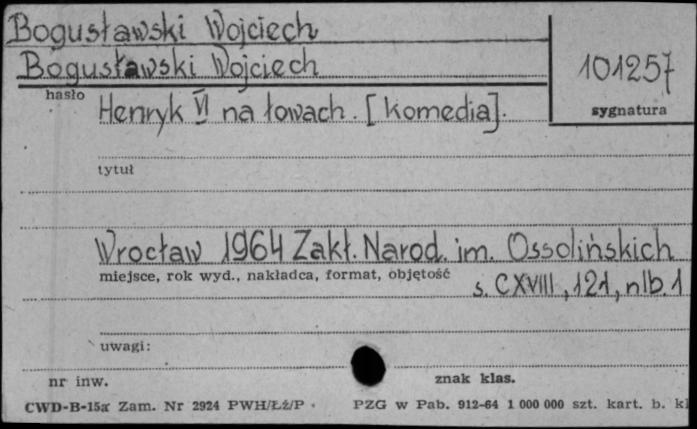 Bogusławski Wojciech
Bogusławski Wojciech
101257
hasło
sygnatura
Henryk VI na łowach. [Komedia].
tytuł
Wrocław 1964 Zakł. Narod. im. Ossolińskich
miejsce, rok wyd., nakładca, format, objętość
s. CXVIII, 121, nlb. 1
uwagi:
nr inw. znak klas.
CWD-B-15a Zam. Nr 2924 PWH/Łż/P PZG w Pab. 912-64 1 000 000 szt. kart. b. kl